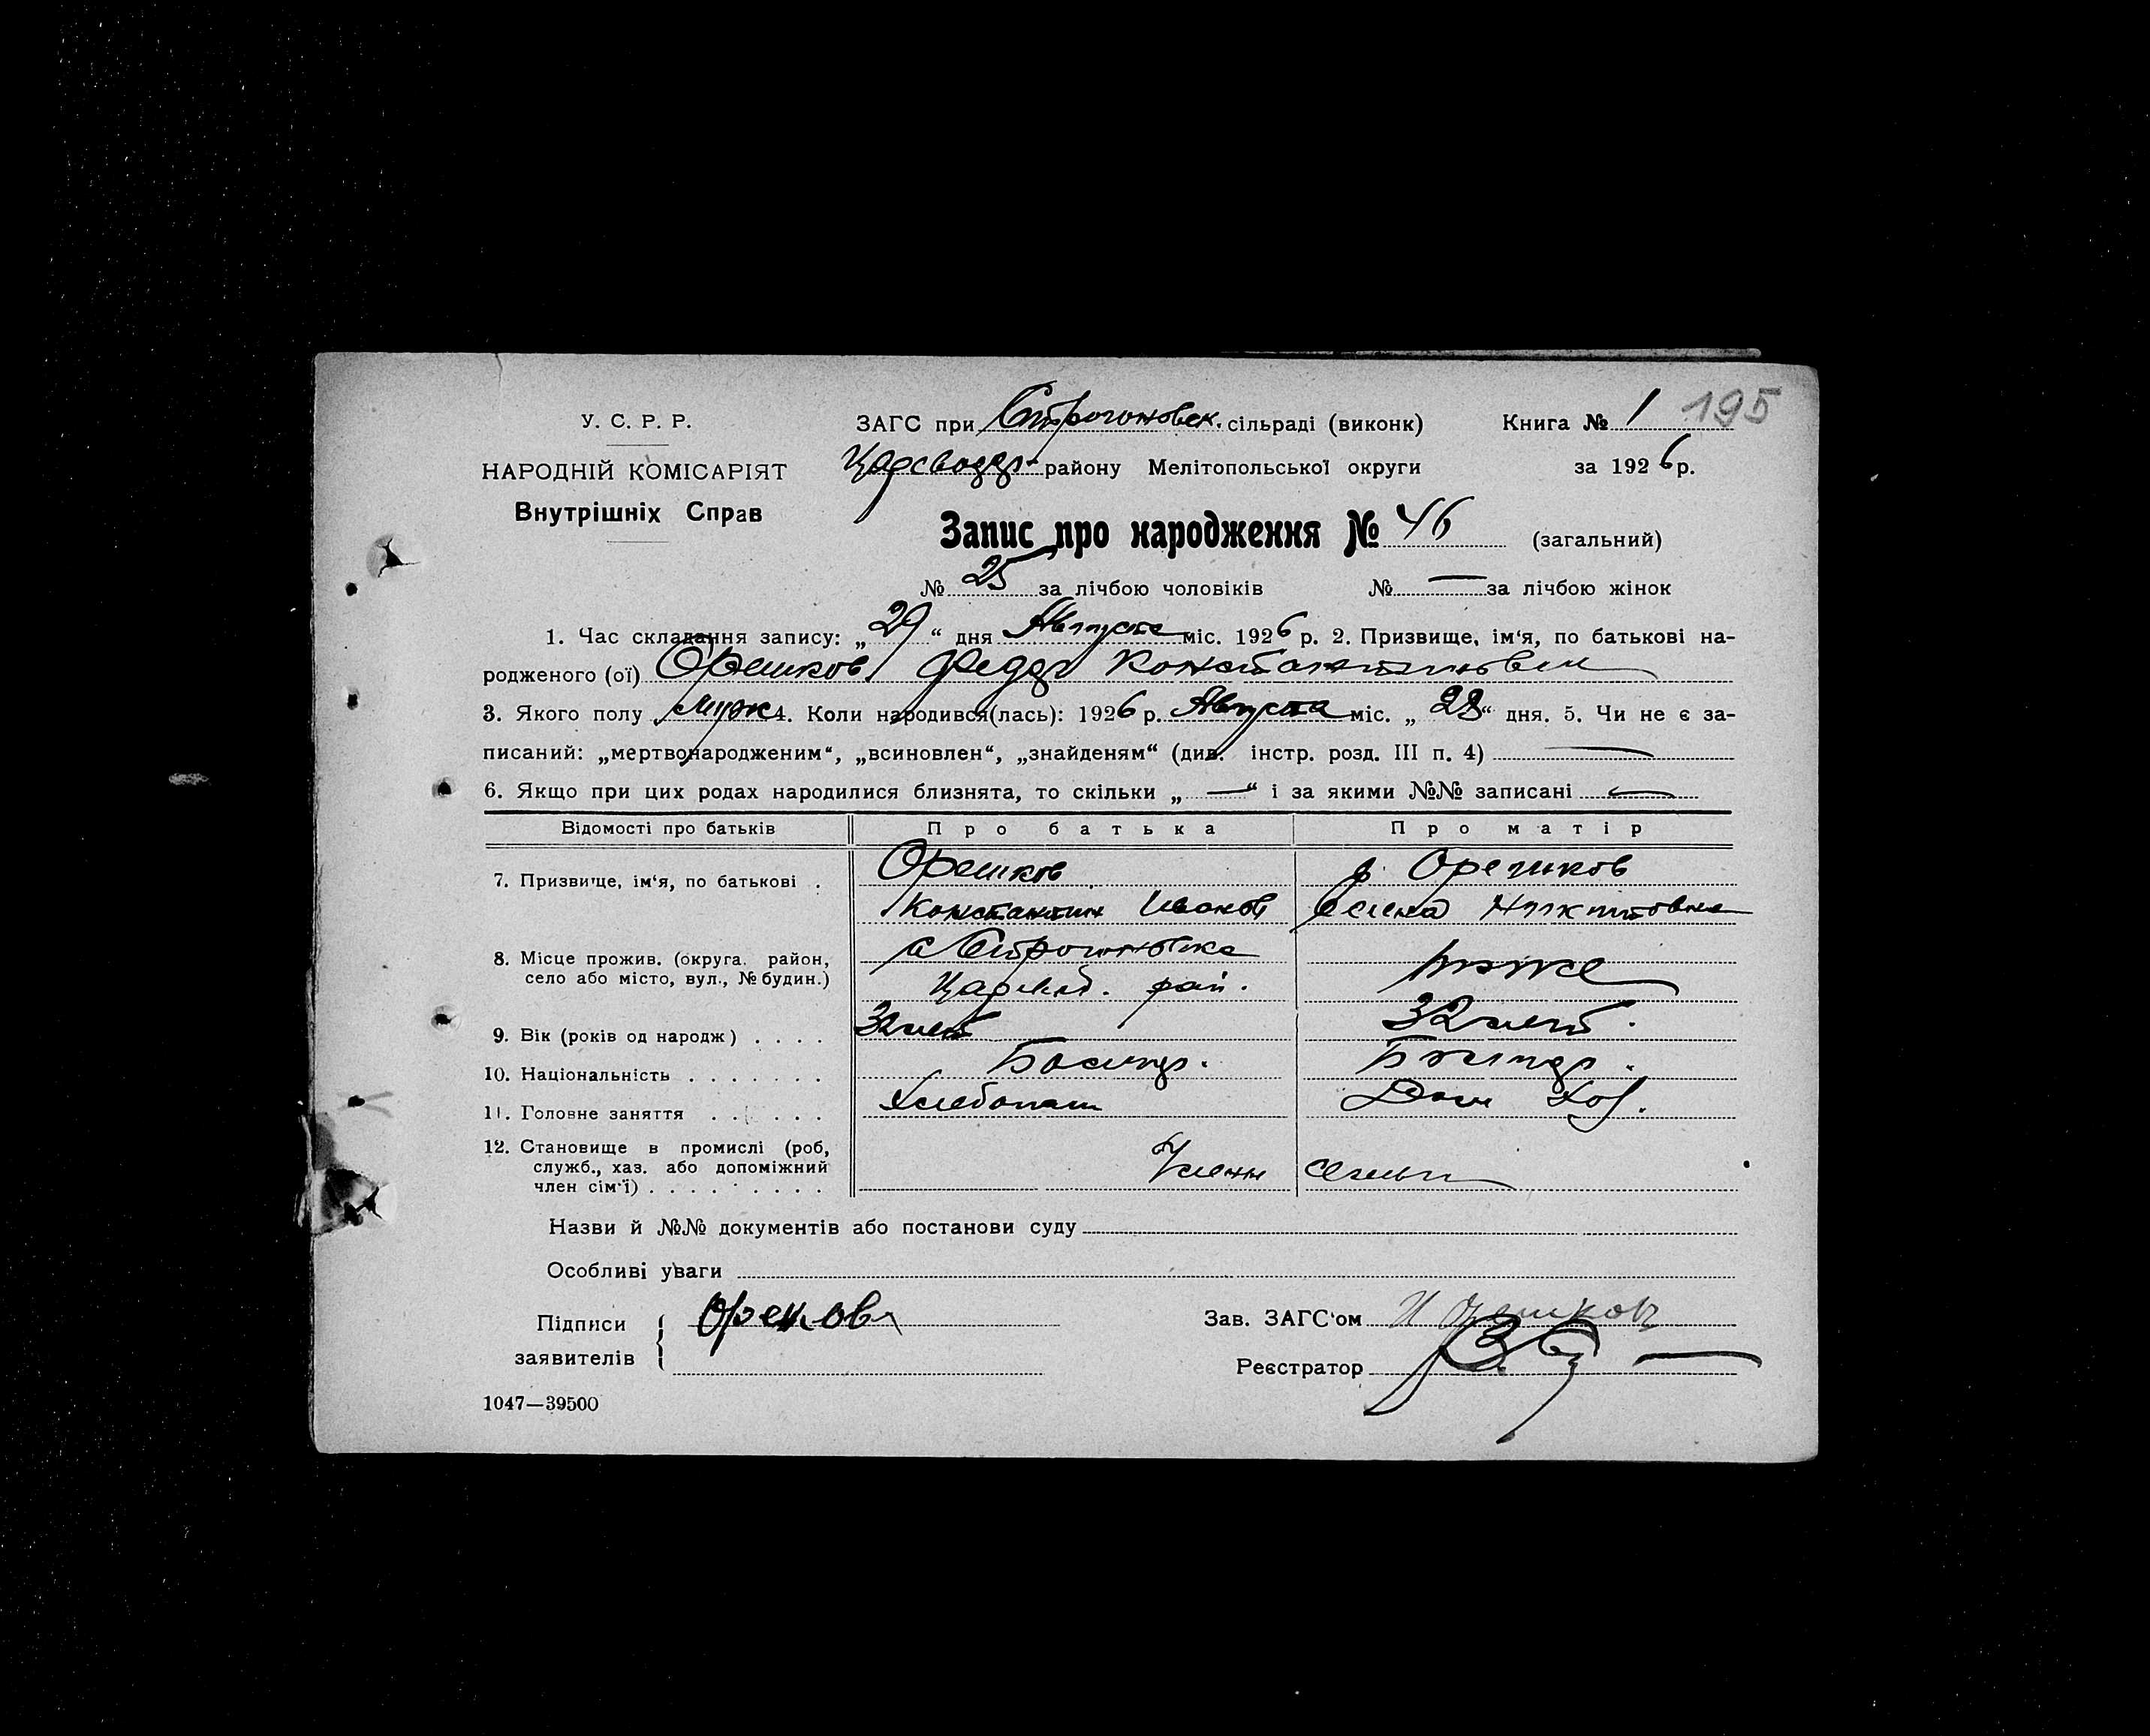 У. С. Р. Р.
ЗАГС при Строгоновск. сільраді (виконк)
Книга № 1 195
НАРОДНІЙ КОМІСАРІЯТ
Внутрішніх Справ
району Мелітопольської округи
за 1926 р.
Запис про народження № 46 (загальний)
№ 25 за лічбою чоловіків № — за лічбою жінок
1. Час складання запису: „29“ дня Августа міс. 1926 р. 2. Призвище, ім‘я, по батькові на-
родженого (ої) Орешков Федор Константинович
3. Якого полу муж 4. Коли народився(лась): 1926 р. Августа міс. „28“ дня. 5. Чи не є за-
писаний: „мертвонародженим“, „всиновлен“, „знайденям“ (див. інстр. розд. III п. 4) —
6. Якщо при цих родах народилися близнята, то скільки „—“ і за якими №№ записані —
Відомості про батьків Про батька Про матір
7. Призвище, ім‘я, по батькові . Орешков Орешков
Константин Иванов Елена Никитовна
8. Місце прожив. (округа, район, с Строгоновка тоже
село або місто, вул., № будин.) рай.
9. Вік (років од народж) . . . . 32 лет 32 лет.
10. Національність . . . . . . . Болгар. Болгар.
11. Головне заняття . . . . . . Хлебопаш Дом Хоз.
12. Становище в промислі (роб, Члены семьи
служб., хаз. або допоміжний
член сім‘ї) . . . . . . . . .
Назви й №№ документів або постанови суду
Особливі уваги
Підписи
заявителів
Зав. ЗАГС‘ом
Реєстратор
1047—39500